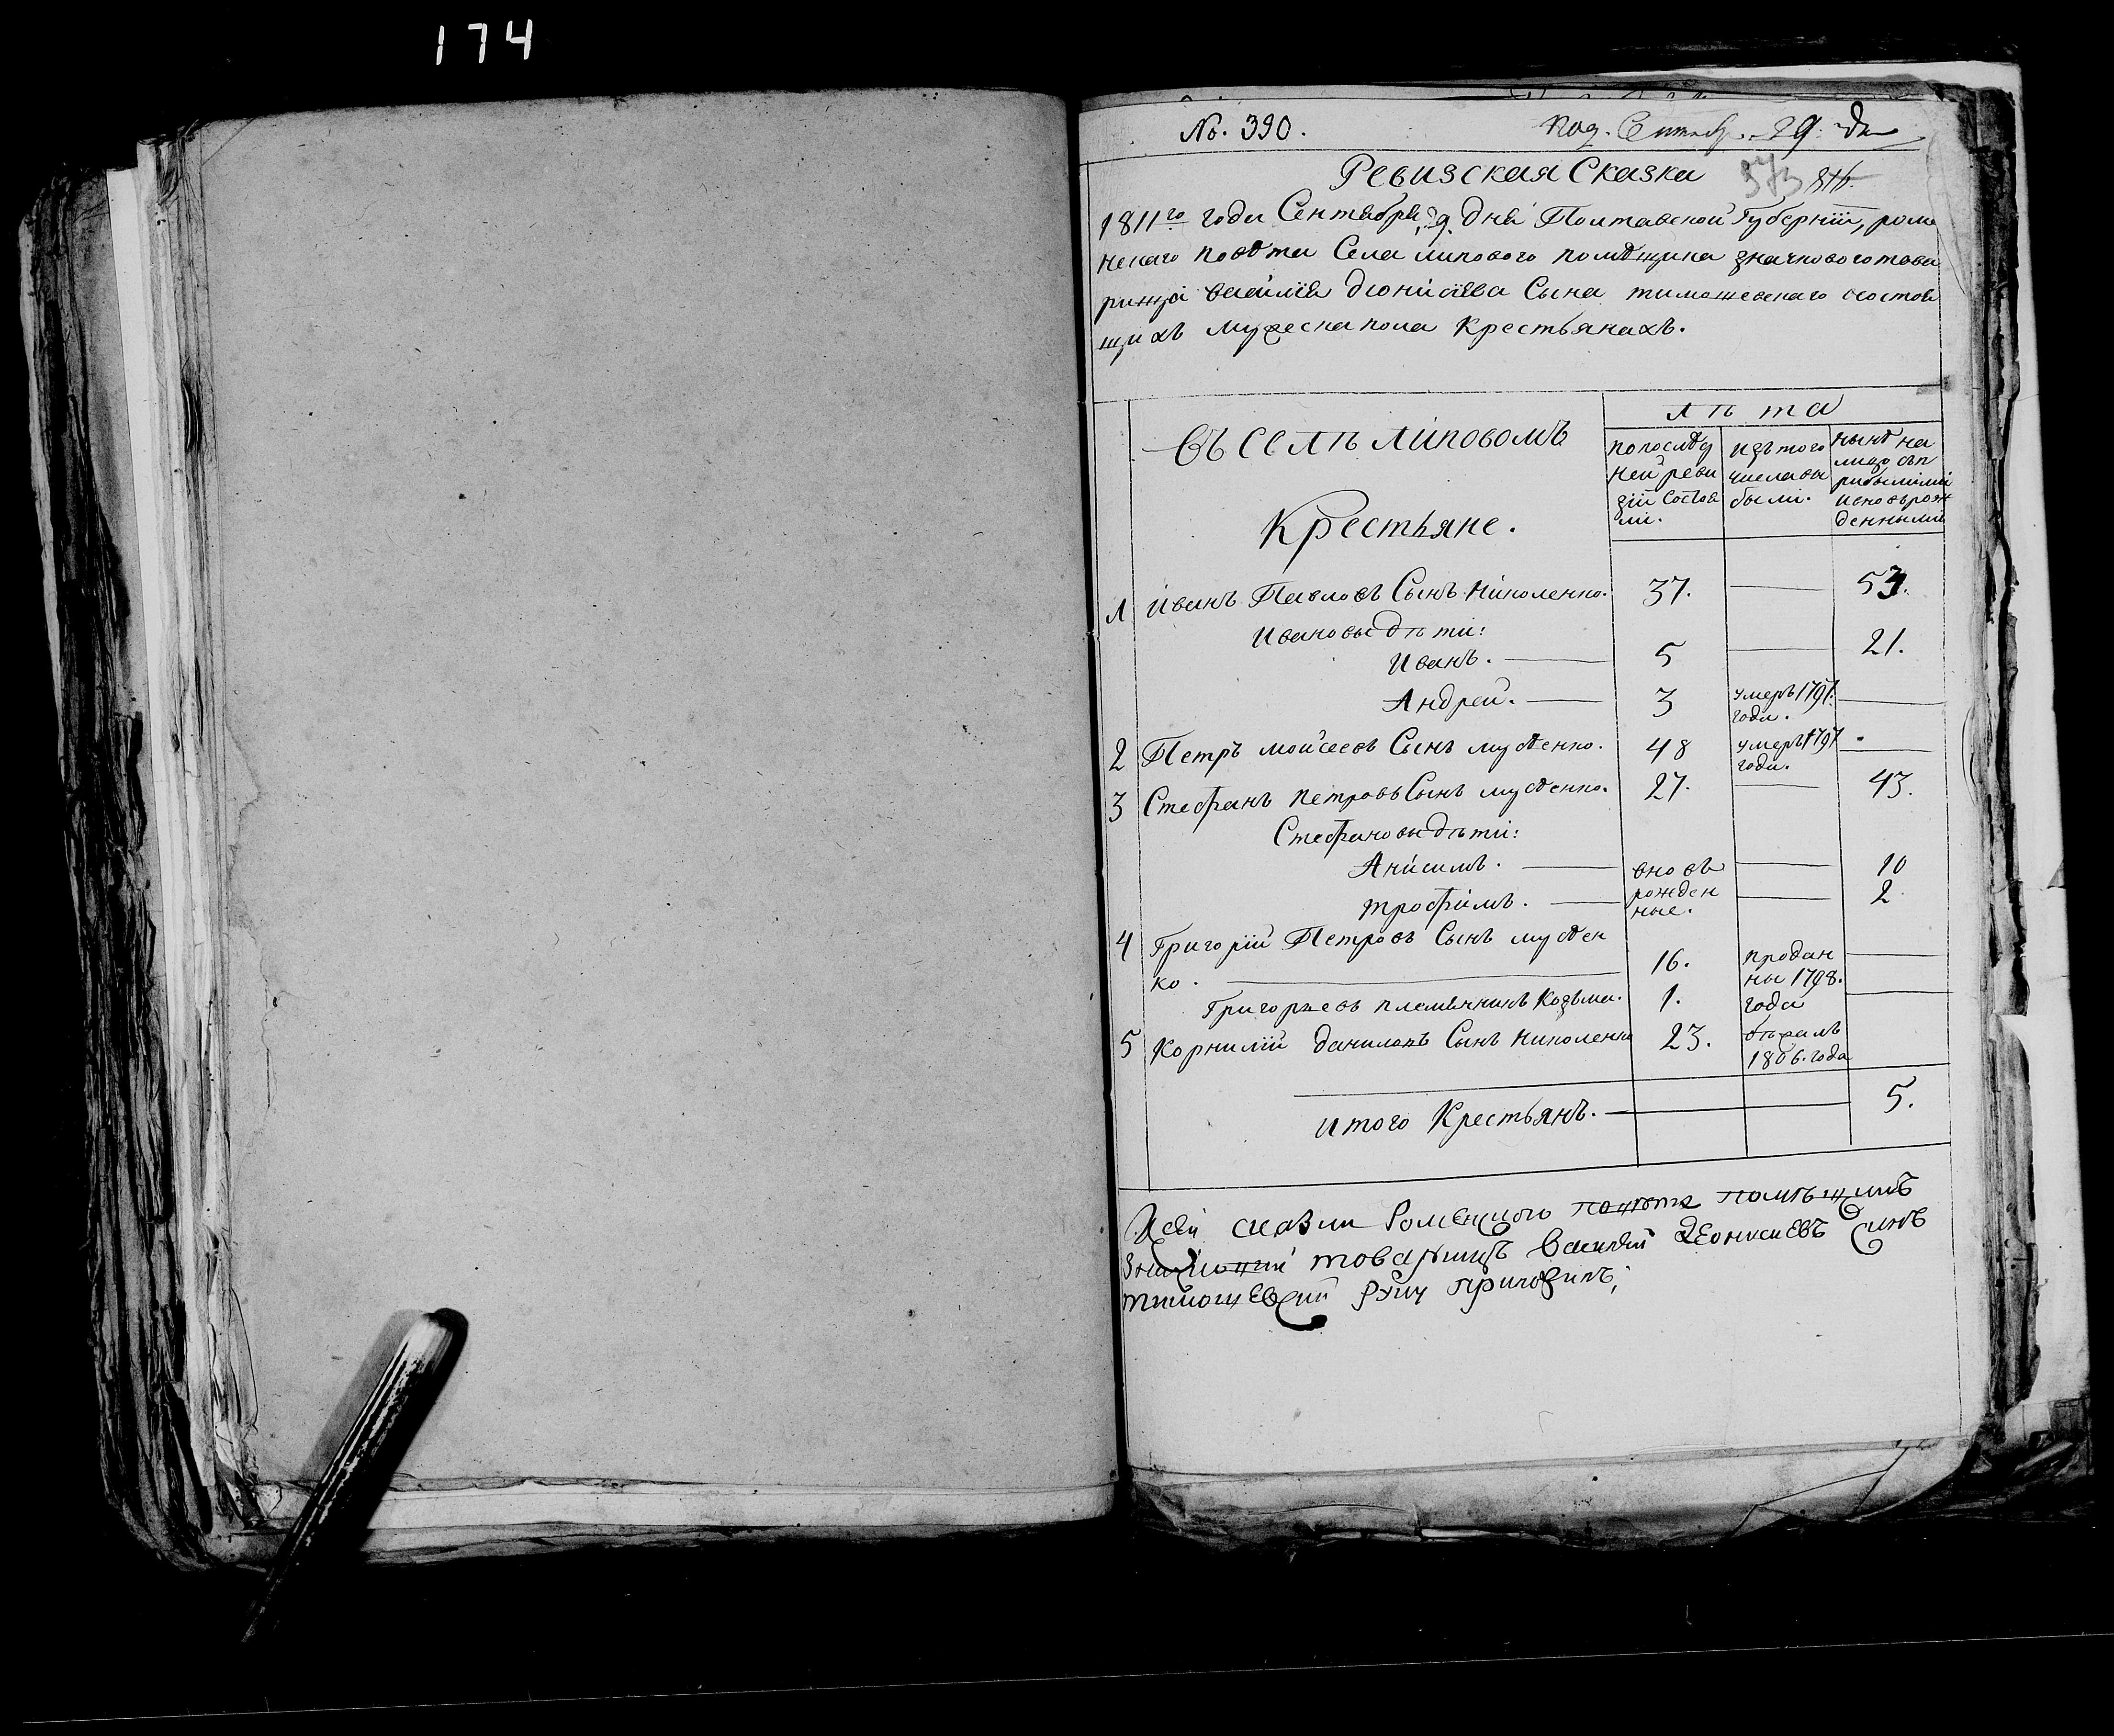 174
No. 390.
Под. Сентябр. 29. дня
Ревизская Сказка
373
1811го года Сентября 29. дня Полтавской Губернии, роме
нскаго повѣта Села липового помѣщика значкового това
рища василія дионисіева Сына тимошевскаго осостоя
щихъ мужеска пола Крестьянахъ.
лѣта
въ селѣ липовомъ
попослѣд
ней реви
зіи Состоя
ли.
изътого
числавы
были.
нынѣ на
лицо съп
рибылыми
иновьрож
денными
Крестьяне.
1 иванъ Павловъ Сынъ Николенко. 37. 53.
Ивановы дѣти:
Иванъ. 5 21.
Андрей. 3 умеръ1797.
года.
2 Петръ мойсеевъ Сынъ мусѣенко. 48 умеръ1797
года.
3 Стефанъ петровъ Сынъ мусѣенко. 27. 43.
Стефановы дѣти:
Анисимъ. вновь 10
трофимъ. рожден 2
ные.
4 Григорій Петровъ Сынъ мусѣен
ко. 16. продан
ны 1798.
Григорьевъ племянникъ Козьма. 1. года
5 Корнилій даниловъ Сынъ Николенко 23. бѣжалъ
1806. года
итого Крестьянъ. 5.
Ксей сказки Роменского повѣта помѣщикъ
Значковий товарищъ Василий Деонисиевъ синъ
тимошевский руку приложилъ;